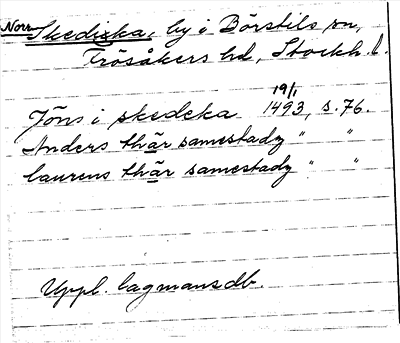 Norr Skedicka, by i Börstils sn,
Frösåkers hd, Stockh. l.
19/1
Jöns i skedeka 1493, s. 76.
Anders thär samestady " "
laurens thär samestady " "
Uppl. lagmansdb.